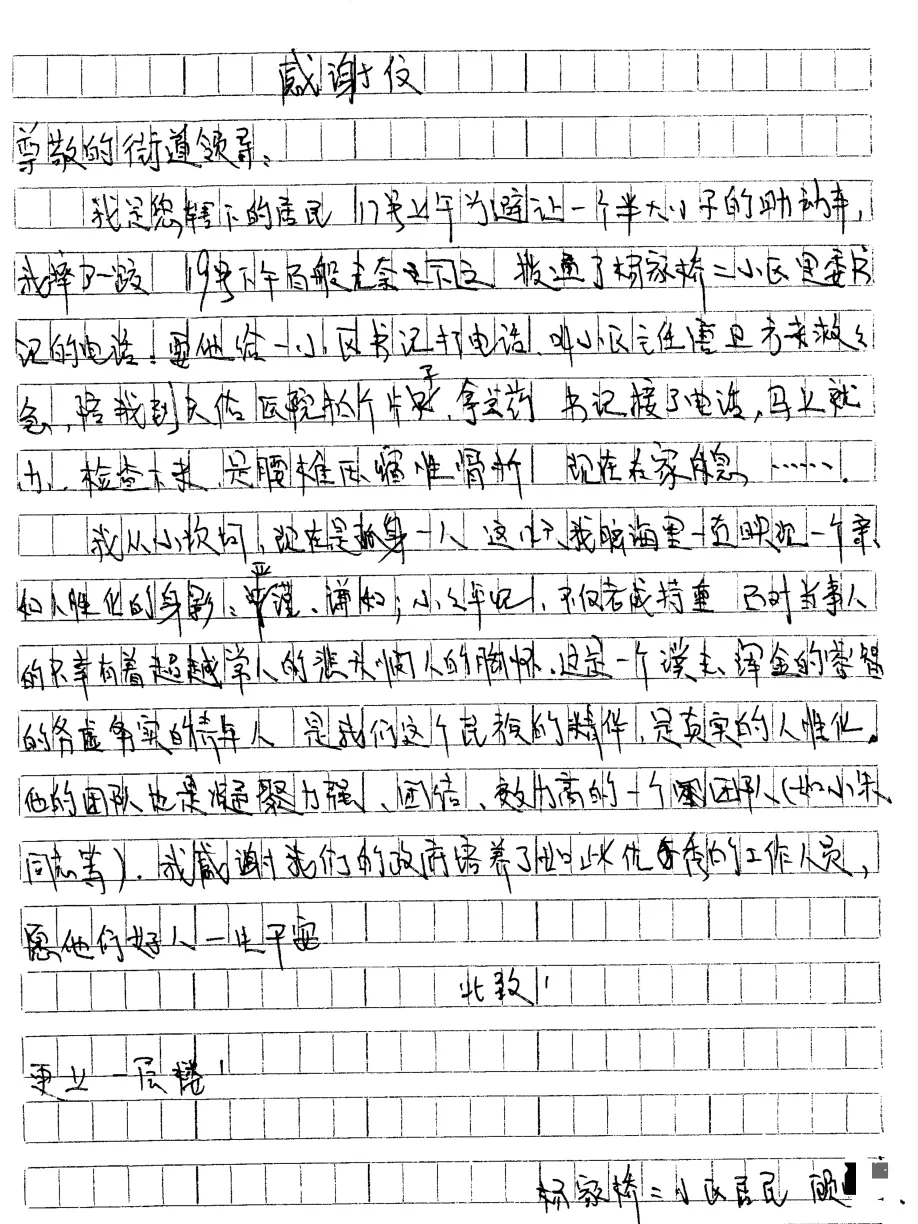 感谢信
尊敬的街道领导：
我是您辖下的居民 17号上午为避让一个半大小子的助动车，
我摔了一跤 19号下午百般无奈之下 拨通了杨家桥二小区里委书
记的电话！要他给一小区书记打电话，叫小区主任唐卫方来救救
急，陪我到天佑医院拍个片子，拿些药 书记接了电话，马上就
办，检查下来，是腰椎压缩性骨折 现在在家休息，……。
我从小坎坷，现在是孤身一人 这些天我脑海里一直映现一个亲
如人性化的身影：严谨、谦和；小小年纪、不仅老成持重 而对当事人
的不幸有着超越常人的悲天悯人的胸怀，这是一个璞玉浑金的睿智
的务虚务实的青年人 是我们这个民族的精华，是真实的人性化。
他的团队也是凝聚力强、团结、效力高的一个团队（如小朱
同志等）。我感谢我们的政府培养了如此优秀的工作人员，
愿他们好人一生平安
此致！
更上一层楼！
杨家桥二小区居民 顾